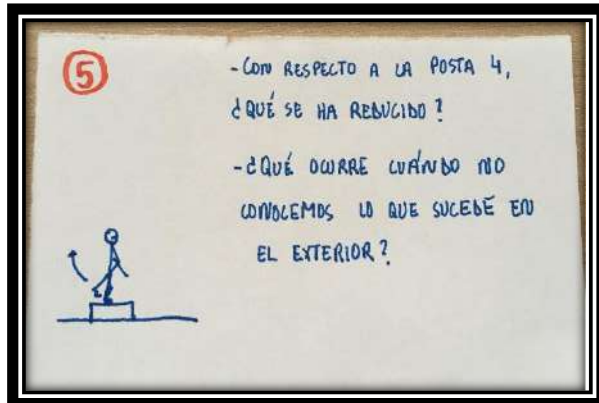 5
- CON RESPECTO A LA POSTA 4,
¿QUÉ SE HA REDUCIDO?
- ¿QUÉ OCURRE CUÁNDO NO
CONOCEMOS LO QUE SUCEDE EN
EL EXTERIOR?